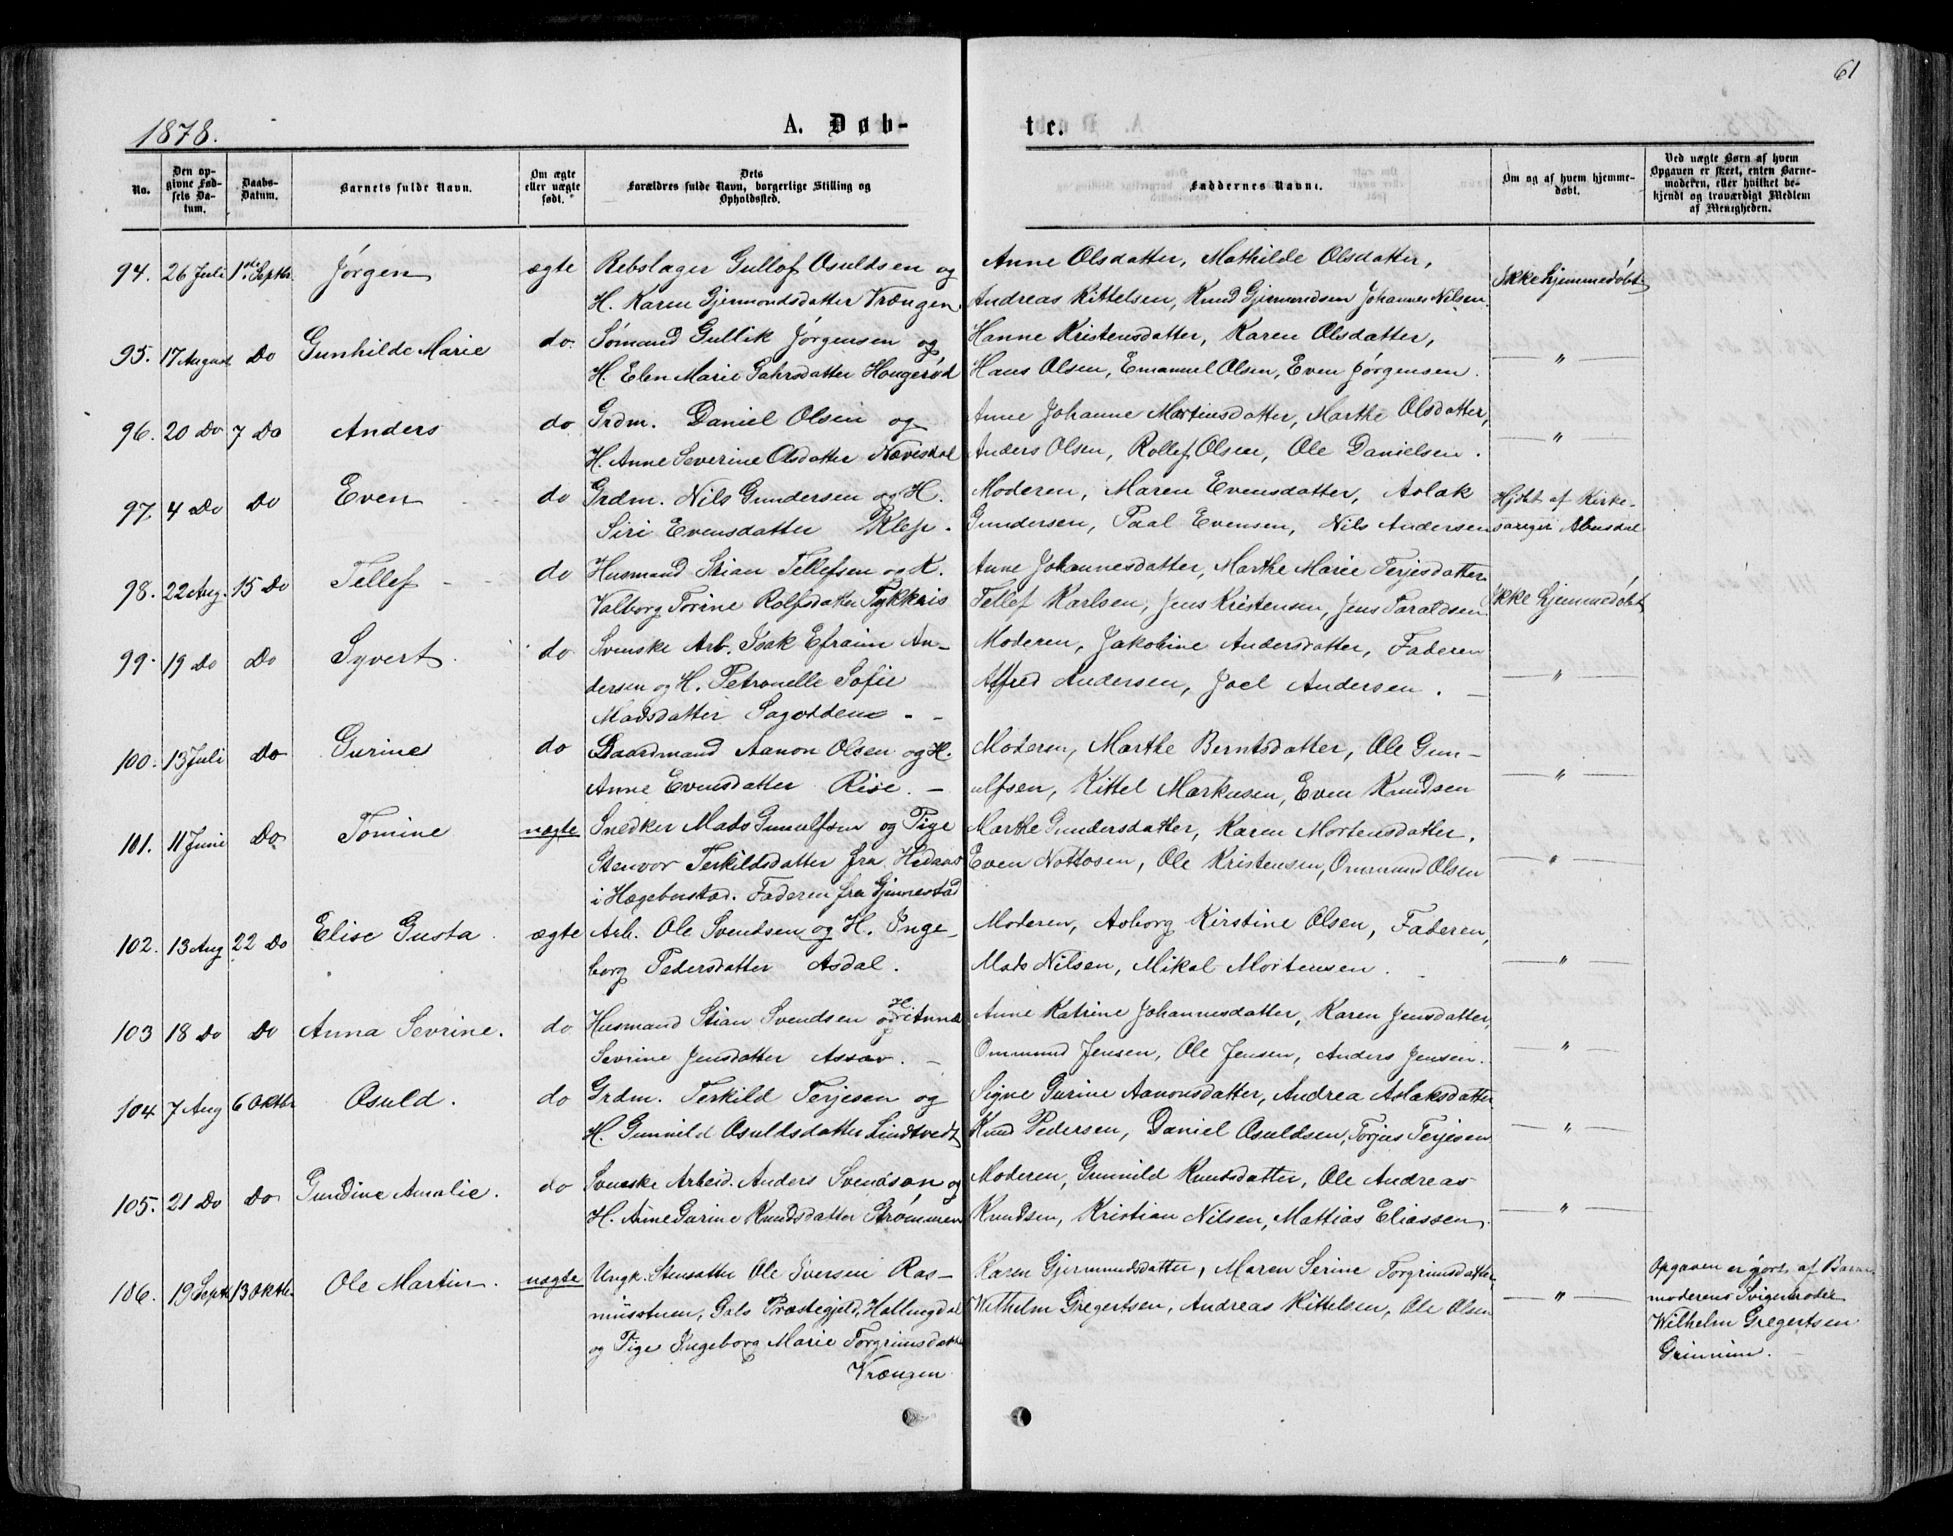 61
1878.
A. Døb-
te.
No.
Den op-
givne Fød-
sels Da-
tum.
Daabs-
Datum.
Barnets fulde Navn.
Om ægte
eller uægte
født.
Dets
Forældres fulde Navn, borgerlige Stilling og
Opholdssted.
Faddernes Navne.
Om og af hvem hjemme-
døbt.
Ved uægte Børn af hvem
Opgaven er skeet, enten Barne-
moderen, eller hvilket be-
kjendt og troværdigt Medlem
af Menigheden.
94. 26 Juli 1ste Septbr. Jørgen ægte Rebslager Gullof Osuldsen og Anne Olsdatter, Mathilde Olsdatter, Ikke hjemmedøbt
H. Karen Gjermondsdatter Vrængen Andreas Kittelsen, Knud Gjermundsen Johannes Nilsen.
95. 17 August Do Gunhilde Marie do. Sømand Gullik Jørgensen og Hanne Kristensdatter, Karen Olsdatter, — " —
H. Elen Marie Hougerød Hans Olsen, Emanuel Olsen, Even Jørgensen.
96. 20 Do 7 Do Anders do Grdm. Daniel Olsen og Anne Johanne Martinsdatter, Marthe Olsdatter, — " —
H. Anne Severine Olsdatter Nævesdal Anders Olsen, Rollef Olsen, Ole Danielsen.
97. 4 Do Do Even do Grdm. Nils Gundersen og H. Moderen, Maren Evensdatter, Aslak Hjdbt af Kirke-
Siri Evensdatter Klep. Gundersen, Paal Evensen, Nils Andersen sanger
98. 22 Aug. 15 Do Tellef do Husmand Stian Tellefsen og K. Anne Johannesdatter, Marthe Marie Terjesdatter
Valborg Torine Rolfsdatter Tykkris Tellef Karlsen, Jens Kristensen, Jens Taraldsen Ikke hjemmedøbt
99. 19 Do Do Syvert. do Svenske Arb. Isak Efraim An- Moderen, Jakobine Andersdatter, Faderen
dersen og H. Petronelle Sofie Alfred Andersen, Joel Andersen. — " —
Madsdatter Sagodden
100. 13 Juli Do Gurine do Gaardmand Aanon Olsen og H. Moderen, Marthe Berntsdatter, Ole Gun-
Anne Evensdatter Rise. ulfsen, Kittel Markusen, Even Knudsen — " —
101. 11 Juni Do Tomine uægte Snedker Mads Gunulfsen og Pige Marthe Gundersdatter, Karen Mortensdatter,
Stenvor Terkildsdatter fra Even Nottosen, Ole Kristensen, Ommund Olsen — " —
i Hægebostad. Faderen fra Gjennestad
102. 13 Aug 22 Do Elise Gusta. ægte Arb. Ole Svendsen og H. Inge- Moderen, Aoborg Kirstine Olsen, Faderen,
borg Pedersdatter Asdal. Mads Nilsen, Mikal Mortensen. — " —
103 18 Do Do Anna Sevrine. do Husmand Stian Svendsen og H. Anne Anne Katrine Johannesdatter, Karen Jensdatter,
Sevrine Jensdatter Assav. Ommund Jensen, Ole Jensen, Anders Jensen. — " —
104 7 Aug 6 Oktbr Osuld. do Grdm. Terkild Terjesen og Signe Gurine Aanonsdatter, Andrea Aslaksdatter
H. Gunnild Osuldsdatter Lindtvedt Knud Pedersen, Daniel Osuldsen, Torjus Terjesen — " —
105. 21 Do Do Gundine Amalie. do Svenske Arbeid. Anders Svendson og Moderen, Gunnild Knudsdatter, Ole Andreas
H. Anne Gurine Knudsdatter Strømmen Knudsen, Kristian Nilsen, Mattias Eliassen. — " —
106. 19 Septbr 13 Oktbr. Ole Martin. uægte Ungk. Stensætter Ole Iversen Ras- Karen Gjermundsdatter, Maren Serine Torgrimsdatter Opgaven er gjort af Barne-
musstuen, Gols Præstegjeld, Hallingdal Wilhelm Gregertsen, Andreas Kittelsen, Ole Olsen — " — moderens
og Pige Ingeborg Marie Torgrimsdatter Wilhelm Gregertsen
Vrængen